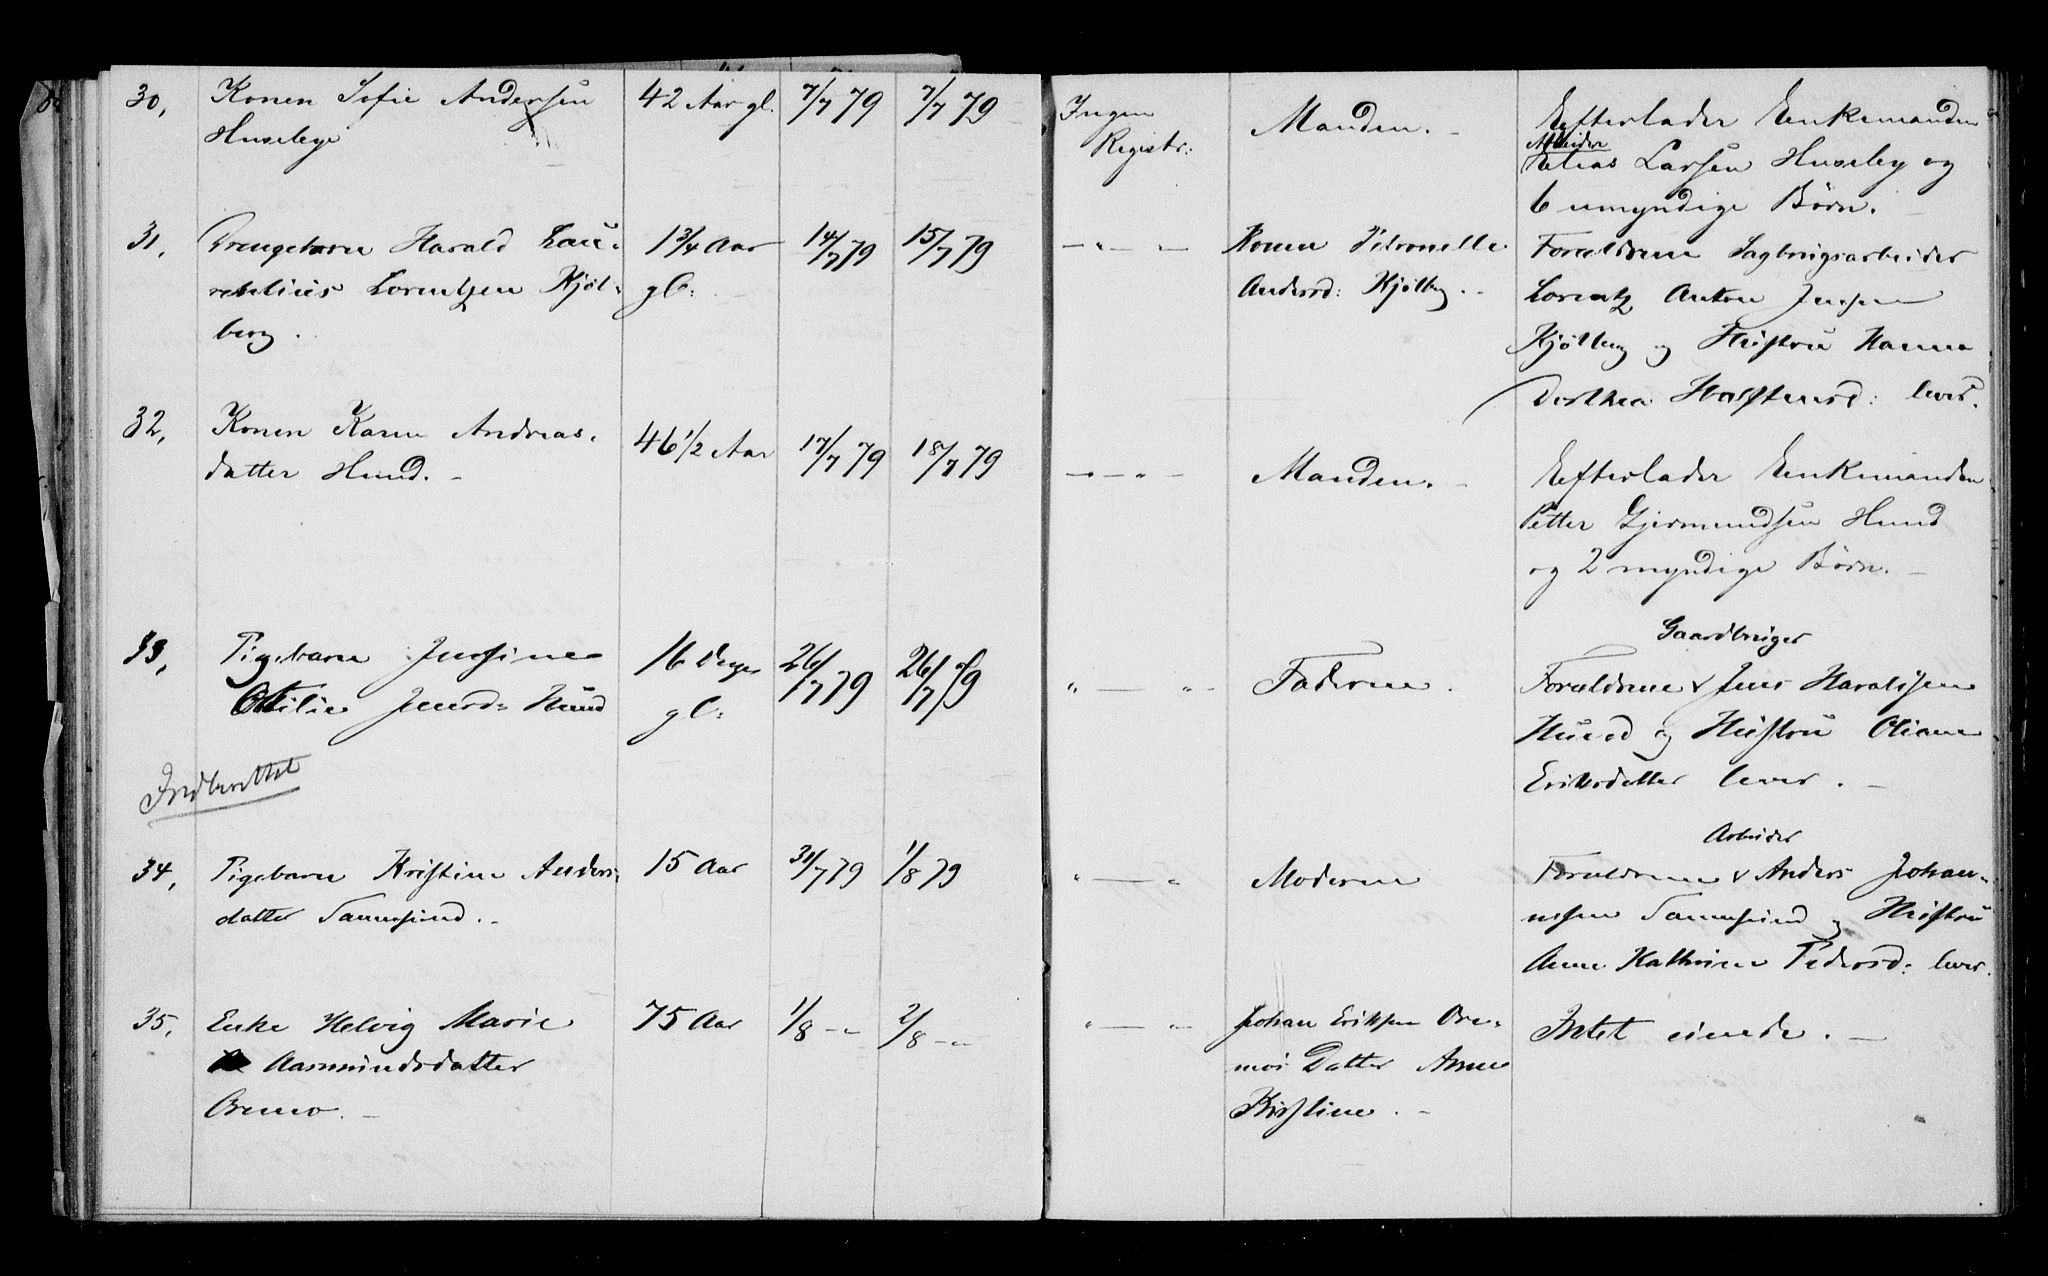 30,
Konen Sofie Andersen
Huseleye
42 Aar gl.
7/7 79
7/7 79
Ingen
Registr:
Manden. -
Efterlader Enkemanden
Arbeider
Elias Larsen Huseby og
6 umyndige Børn. -
31,
Drengebarn Harald Lau-
relius Lorentzen Kjøl-
berg.
1 3/4 Aar
gl:
14/7 79
15/7 79
- " -
Konen Petronelle
Andersd: Kjølberg. -
Forældrene Sagbrugsarbeider
Lorentz Anton Jensen
Kjølberg og Hustru Hanne
Dorthea Halstensd: lever.
32,
Konen Karen Andreas-
datter Hund. -
46 1/2 Aar
17/7 79
18/7 79
- " - " -
Manden. -
Efterlader Enkemanden
Petter Gjermundsen Hund
og 2 myndige Børn. -
33,
Pigebarn Jensine
Otilie Jensd: Hund
16 Dage
gl:
26/7 79
26/7 79
" - " -
Faderen.
Gaardbruger
Forældrene v Jens Haralsen
Hund og Hustru Oliane
Eriksdatter lever. -
Indberettet
34,
Pigebarn Kristine Anders-
datter Tannesund. -
15 Aar
31/7 79
1/8 79
" - "
Moderen
Arbeider
Forældrene v Anders Johan-
nesen Tannesund og Hustru
Anne Kathrine Pedersd: lever.
35,
Enke Helvig Marie
Aasmundsdatter
Oremo. -
75 Aar
1/8 - "
2/8 - "
" - " -
Johan Eriksen Ore-
mos Datter Anne
Kristine. -
Intet eiende. -